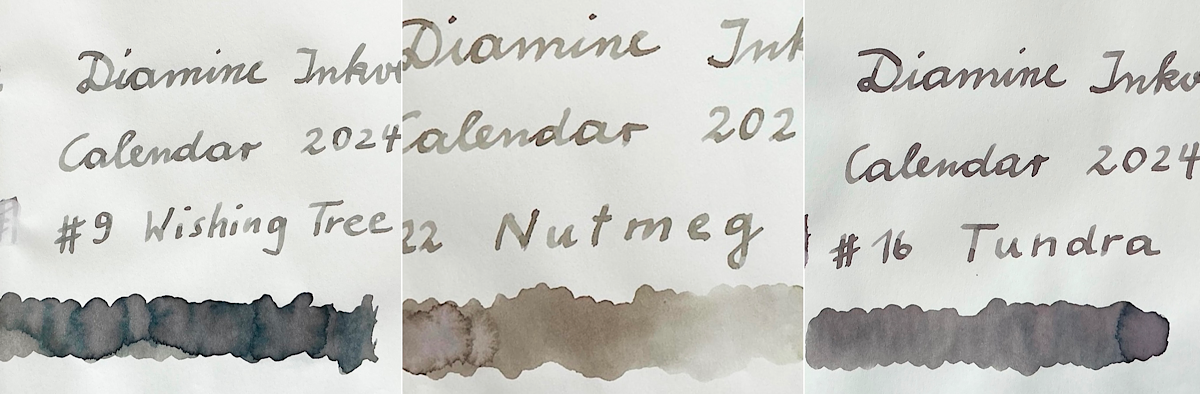 Diamine Inkv
Calendar 2024
#9 Wishing Tree
Diamine Ink
Calendar 202
22 Nutmeg
Diamine Inkv
Calendar 2024
#16 Tundra